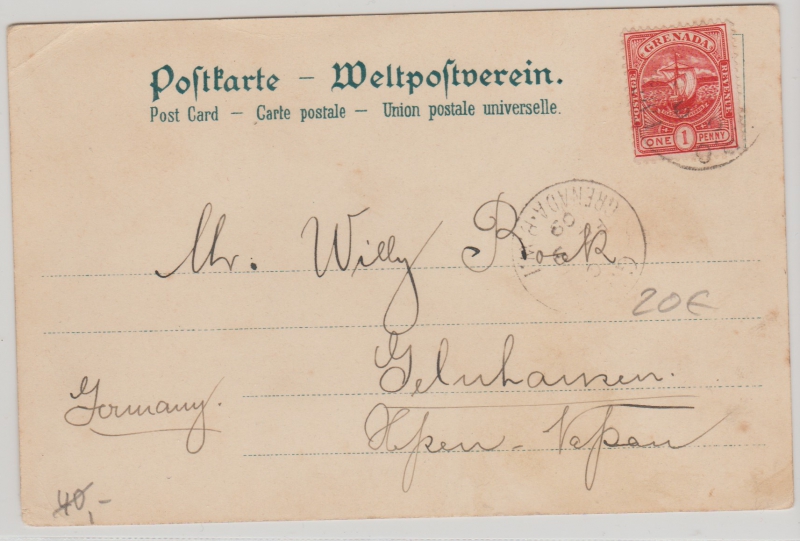 Postkarte – Weltpostverein.
Post Card – Carte postale – Union postale universelle.
GRENADA
POSTAGE
REVENUE
ONE 1 PENNY
GRENADA
Mr. Willy Bock
20€
Gelnhausen.
Germany.
Hessen-Nassau
40,-